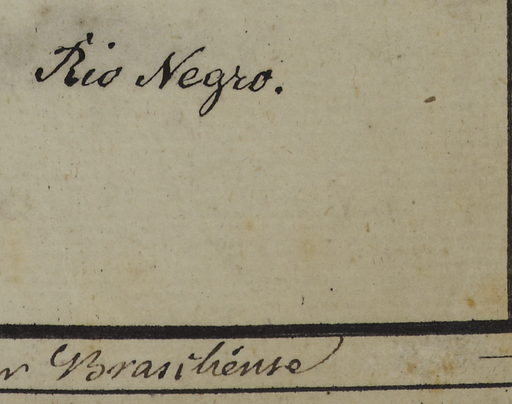 Rio Negro.
r Brasiliense